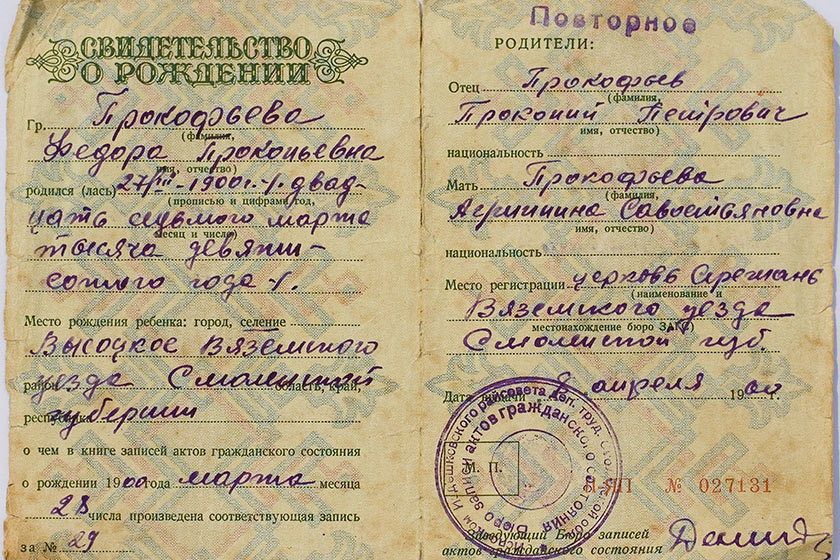 СВИДЕТЕЛЬСТВО
О РОЖДЕНИИ
Гр. Прокофьева
(фамилия,
Федора Прокопьевна
имя, отчество)
родился (лась) 27/III-1900г. двад-
(прописью и цифрами год,
цать седьмого марта
месяц и число)
тысяча девяти-
сотого года
Место рождения ребенка: город, селение
Высоцкое Вяземского
район уезда Смоленской область, край,
республика губернии
о чем в книге записей актов гражданского состояния
о рождении 1900 года марта месяца
28 числа произведена соответствующая запись
за № 29
Повторное
РОДИТЕЛИ:
Отец Прокофьев
(фамилия,
Прокопий Петрович
имя, отчество)
национальность
Мать Прокофьева
(фамилия,
Агриппина Савостьяновна
имя, отчество)
национальность
Место регистрации церковь
(наименование и
Вяземского уезда
местонахождение бюро ЗАГС)
Смоленской губ.
Дата выдачи 8 апреля 1900г.
М. П.
№ 027131
Заведующий Бюро записей
актов гражданского состояния